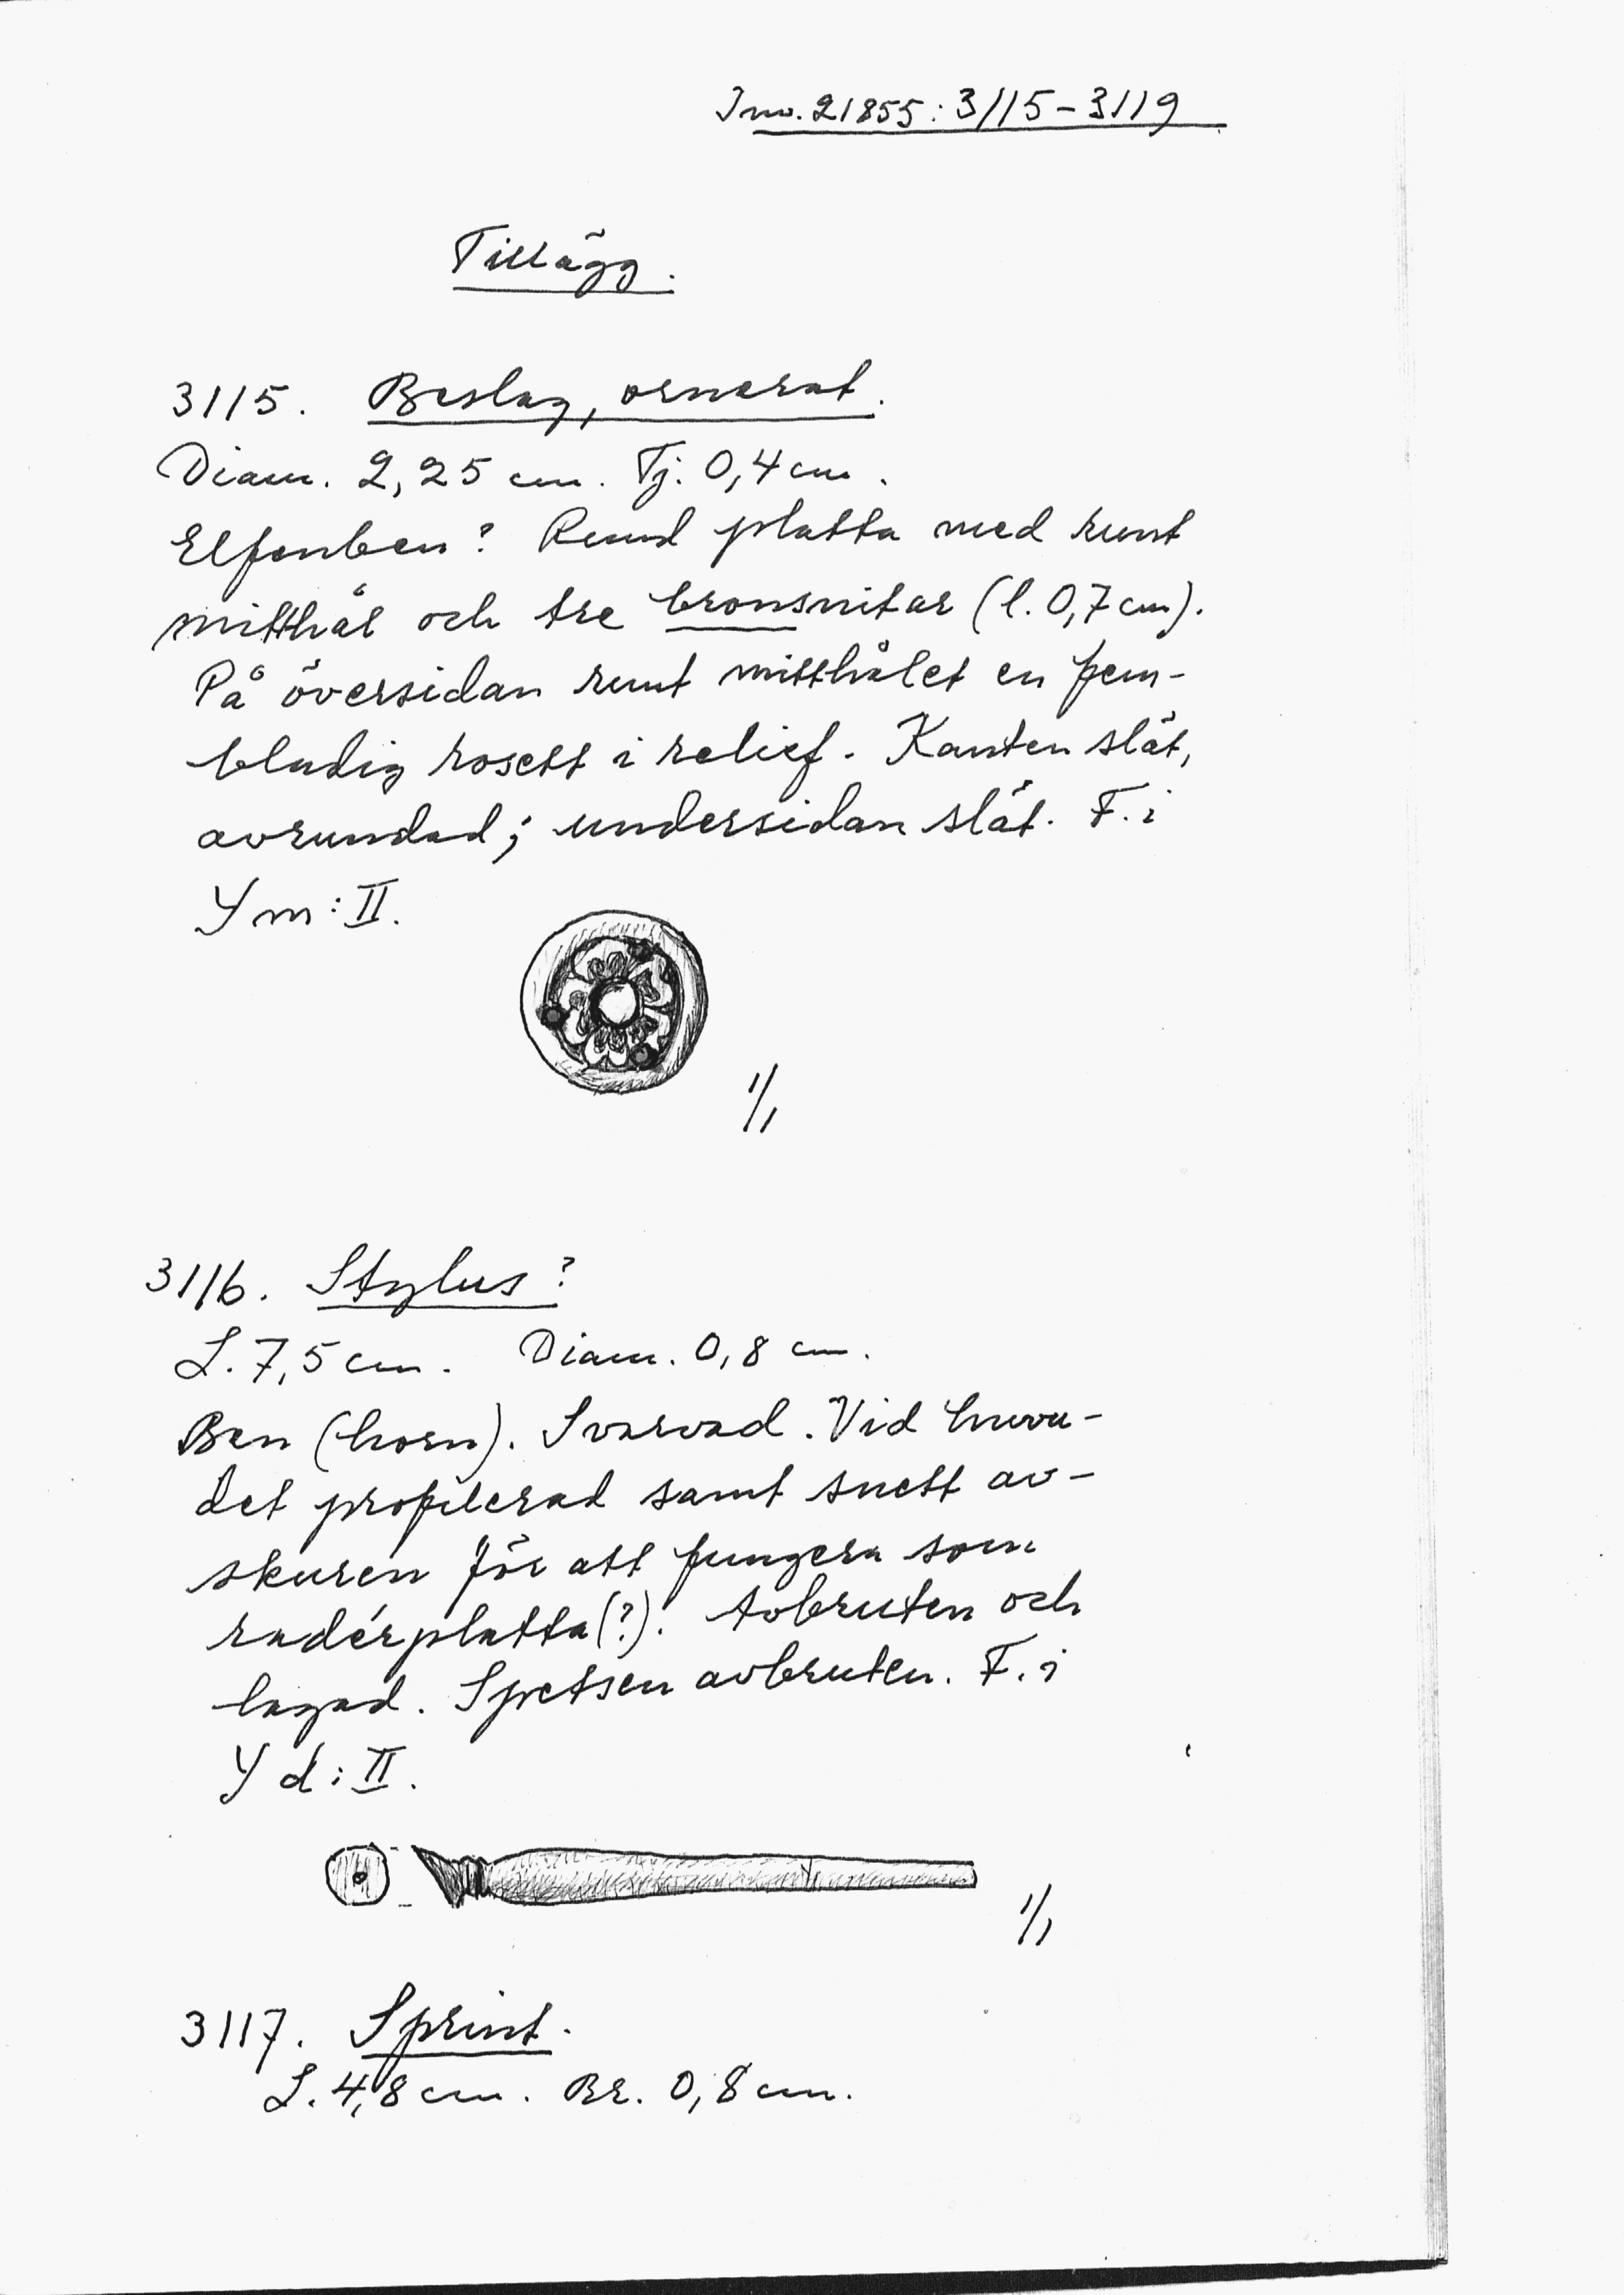 Inv. 21855: 3115-3119
Tillägg.
3115. Beslag, ornerat.
Diam. 2,25 cm. Tj. 0,4 cm.
Elfenben? Rund platta med runt
mitthål och tre bronsnitar (l. 0,7 cm).
På översidan runt mitthålet en fem-
bladig rosett i relief. Kanten slät,
avrundad; undersidan slät. F. i
Y m: II.
1/1
3116. Stylus?
L. 7,5 cm. Diam. 0,8 cm.
Ben (horn). Svarvad. Vid huvu-
det profilerad samt snett av-
skuren för att fungera som
radérplatta (?). Avbruten och
lagad. Spetsen avbruten. F. i
Y d: II.
1/1
3117. Sprint.
L. 4,8 cm. Br. 0,8 cm.